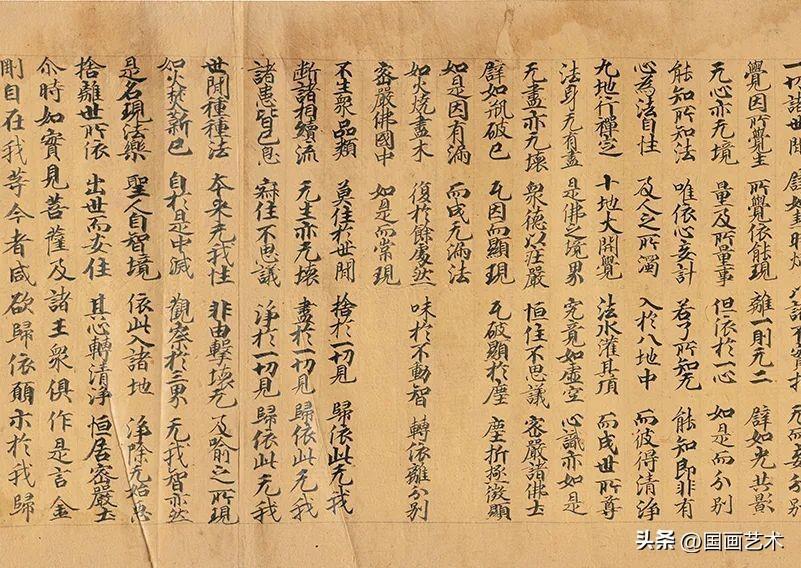 一切諸世間 譬如熱時炎 以諸不實相 无而妄分別
覺因所覺生 所覺依能現 離一則无二 譬如光共影
无心亦无境 量及所量事 但依於一心 如是而分別
能知所知法 唯依心妄計 若了所知无 能知即非有
心為法自性 及人之所濁 入於八地中 而彼得清淨
九地行禪定 十地大開覺 法水灌其頂 而成世所尊
法身无有盡 是佛之境界 究竟如虛空 心識亦如是
无盡亦无壞 衆德以莊嚴 恒住不思議 密嚴諸佛土
譬如瓶破已 瓦因而顯現 瓦破顯於塵 塵析極微顯
如是因有漏 而成无漏法
如火燒盡木 復於餘處然 味於不動智 轉依離分別
密嚴佛國中 如是而常現
不生衆品類 莫住於世間 捨於一切見 歸依此无我
断諸相續流 无生亦无壞 盡於一切見 歸依此无我
諸患皆已息 寂住不思議 淨於一切見 歸依此无我
世間種種法 本來无我性 非由擊壞无 及喻之所現
如火焚薪已 自於是中滅 觀察於三界 无我智亦然
是名現法樂 聖人自智境 依此入諸地 淨除无始惡
捨離世所依 出世而安住 其心轉清淨 恒居密嚴土
尒時如實見菩薩及諸王衆俱作是言金
剛自在我等今者咸欲歸依願示於我歸
头条 @国画艺术